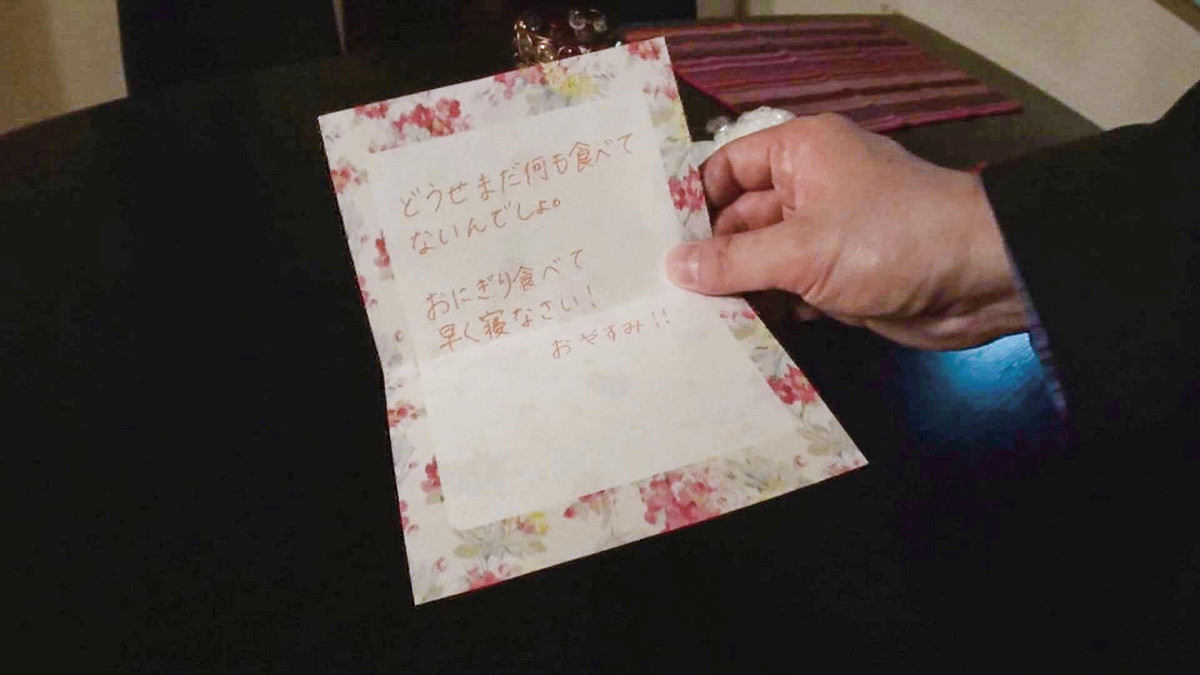 どうせまだ何も食べて
ないんでしょ。
おにぎり食べて
早く寝なさい！
おやすみ!!